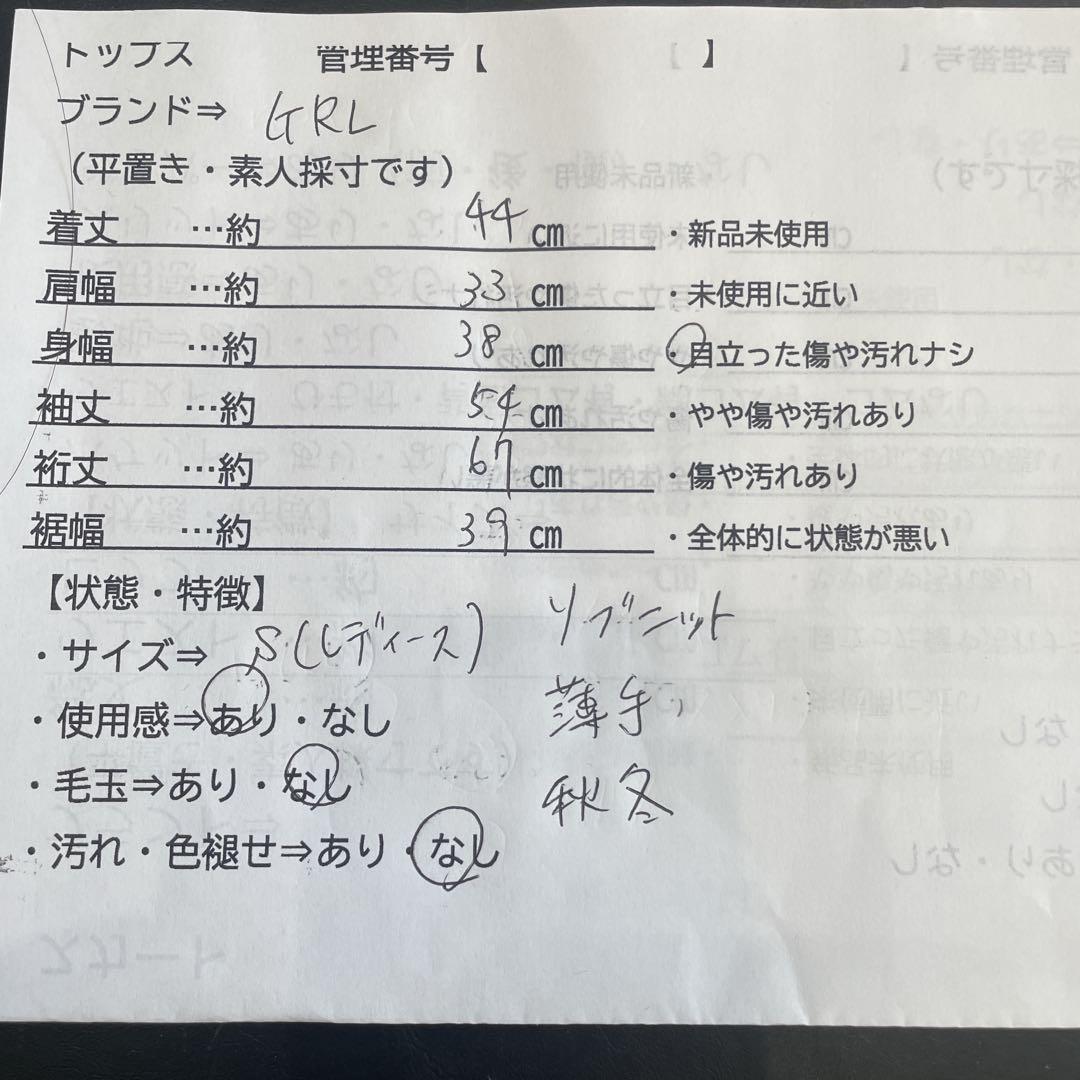 トップス 管理番号【 】
ブランド⇒ GRL
（平置き・素人採寸です）
着丈 …約 44 cm ・新品未使用
肩幅 …約 33 cm ・未使用に近い
身幅 …約 38 cm ・目立った傷や汚れナシ
袖丈 …約 54 cm ・やや傷や汚れあり
裄丈 …約 67 cm ・傷や汚れあり
裾幅 …約 39 cm ・全体的に状態が悪い
【状態・特徴】 リブニット
・サイズ⇒ S(レディース)
・使用感⇒あり・なし 薄手
・毛玉⇒あり・なし 秋冬
・汚れ・色褪せ⇒あり・なし